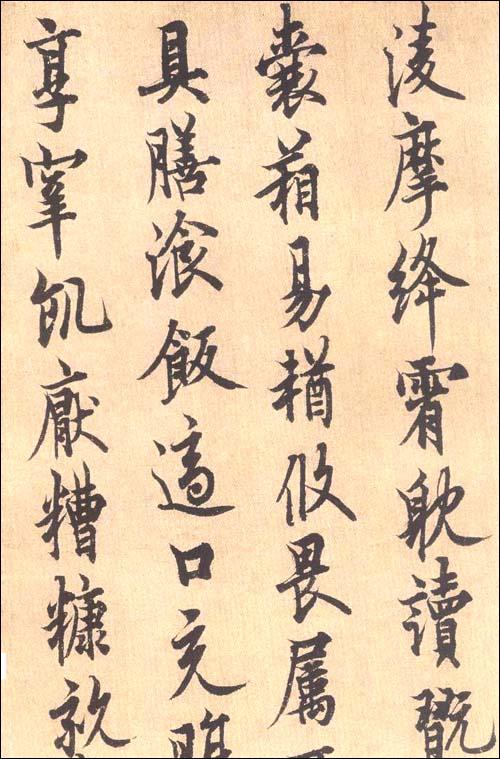 淩摩絳霄躭讀翫
囊箱易輶攸畏屬
具膳湌飯適口充腸
享宰飢厭糟糠親